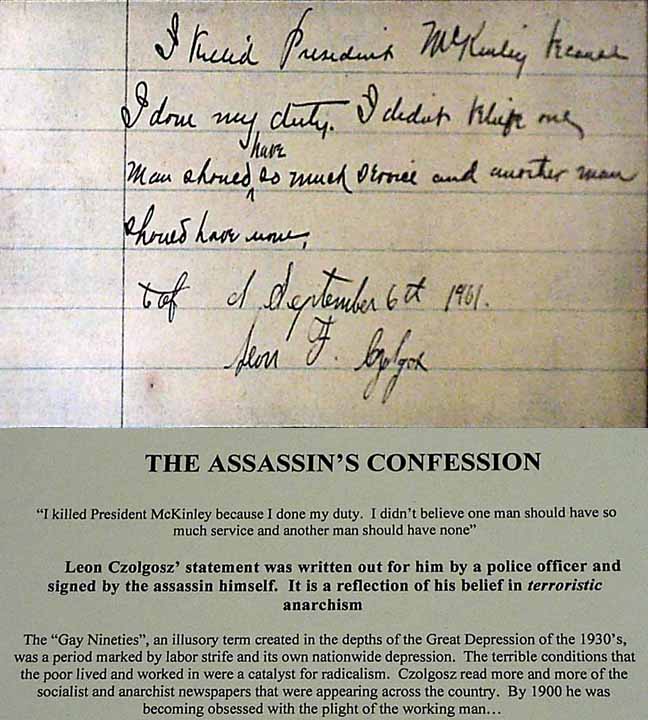 I killed President McKinley because
I done my duty. I didn't believe one
man should have so much service and another man
should have none.
September 6th 1901.
Leon F. Czolgosz
THE ASSASSIN'S CONFESSION
"I killed President McKinley because I done my duty. I didn't believe one man should have so
much service and another man should have none"
Leon Czolgosz' statement was written out for him by a police officer and
signed by the assassin himself. It is a reflection of his belief in terroristic
anarchism
The "Gay Nineties", an illusory term created in the depths of the Great Depression of the 1930's,
was a period marked by labor strife and its own nationwide depression. The terrible conditions that
the poor lived and worked in were a catalyst for radicalism. Czolgosz read more and more of the
socialist and anarchist newspapers that were appearing across the country. By 1900 he was
becoming obsessed with the plight of the working man…